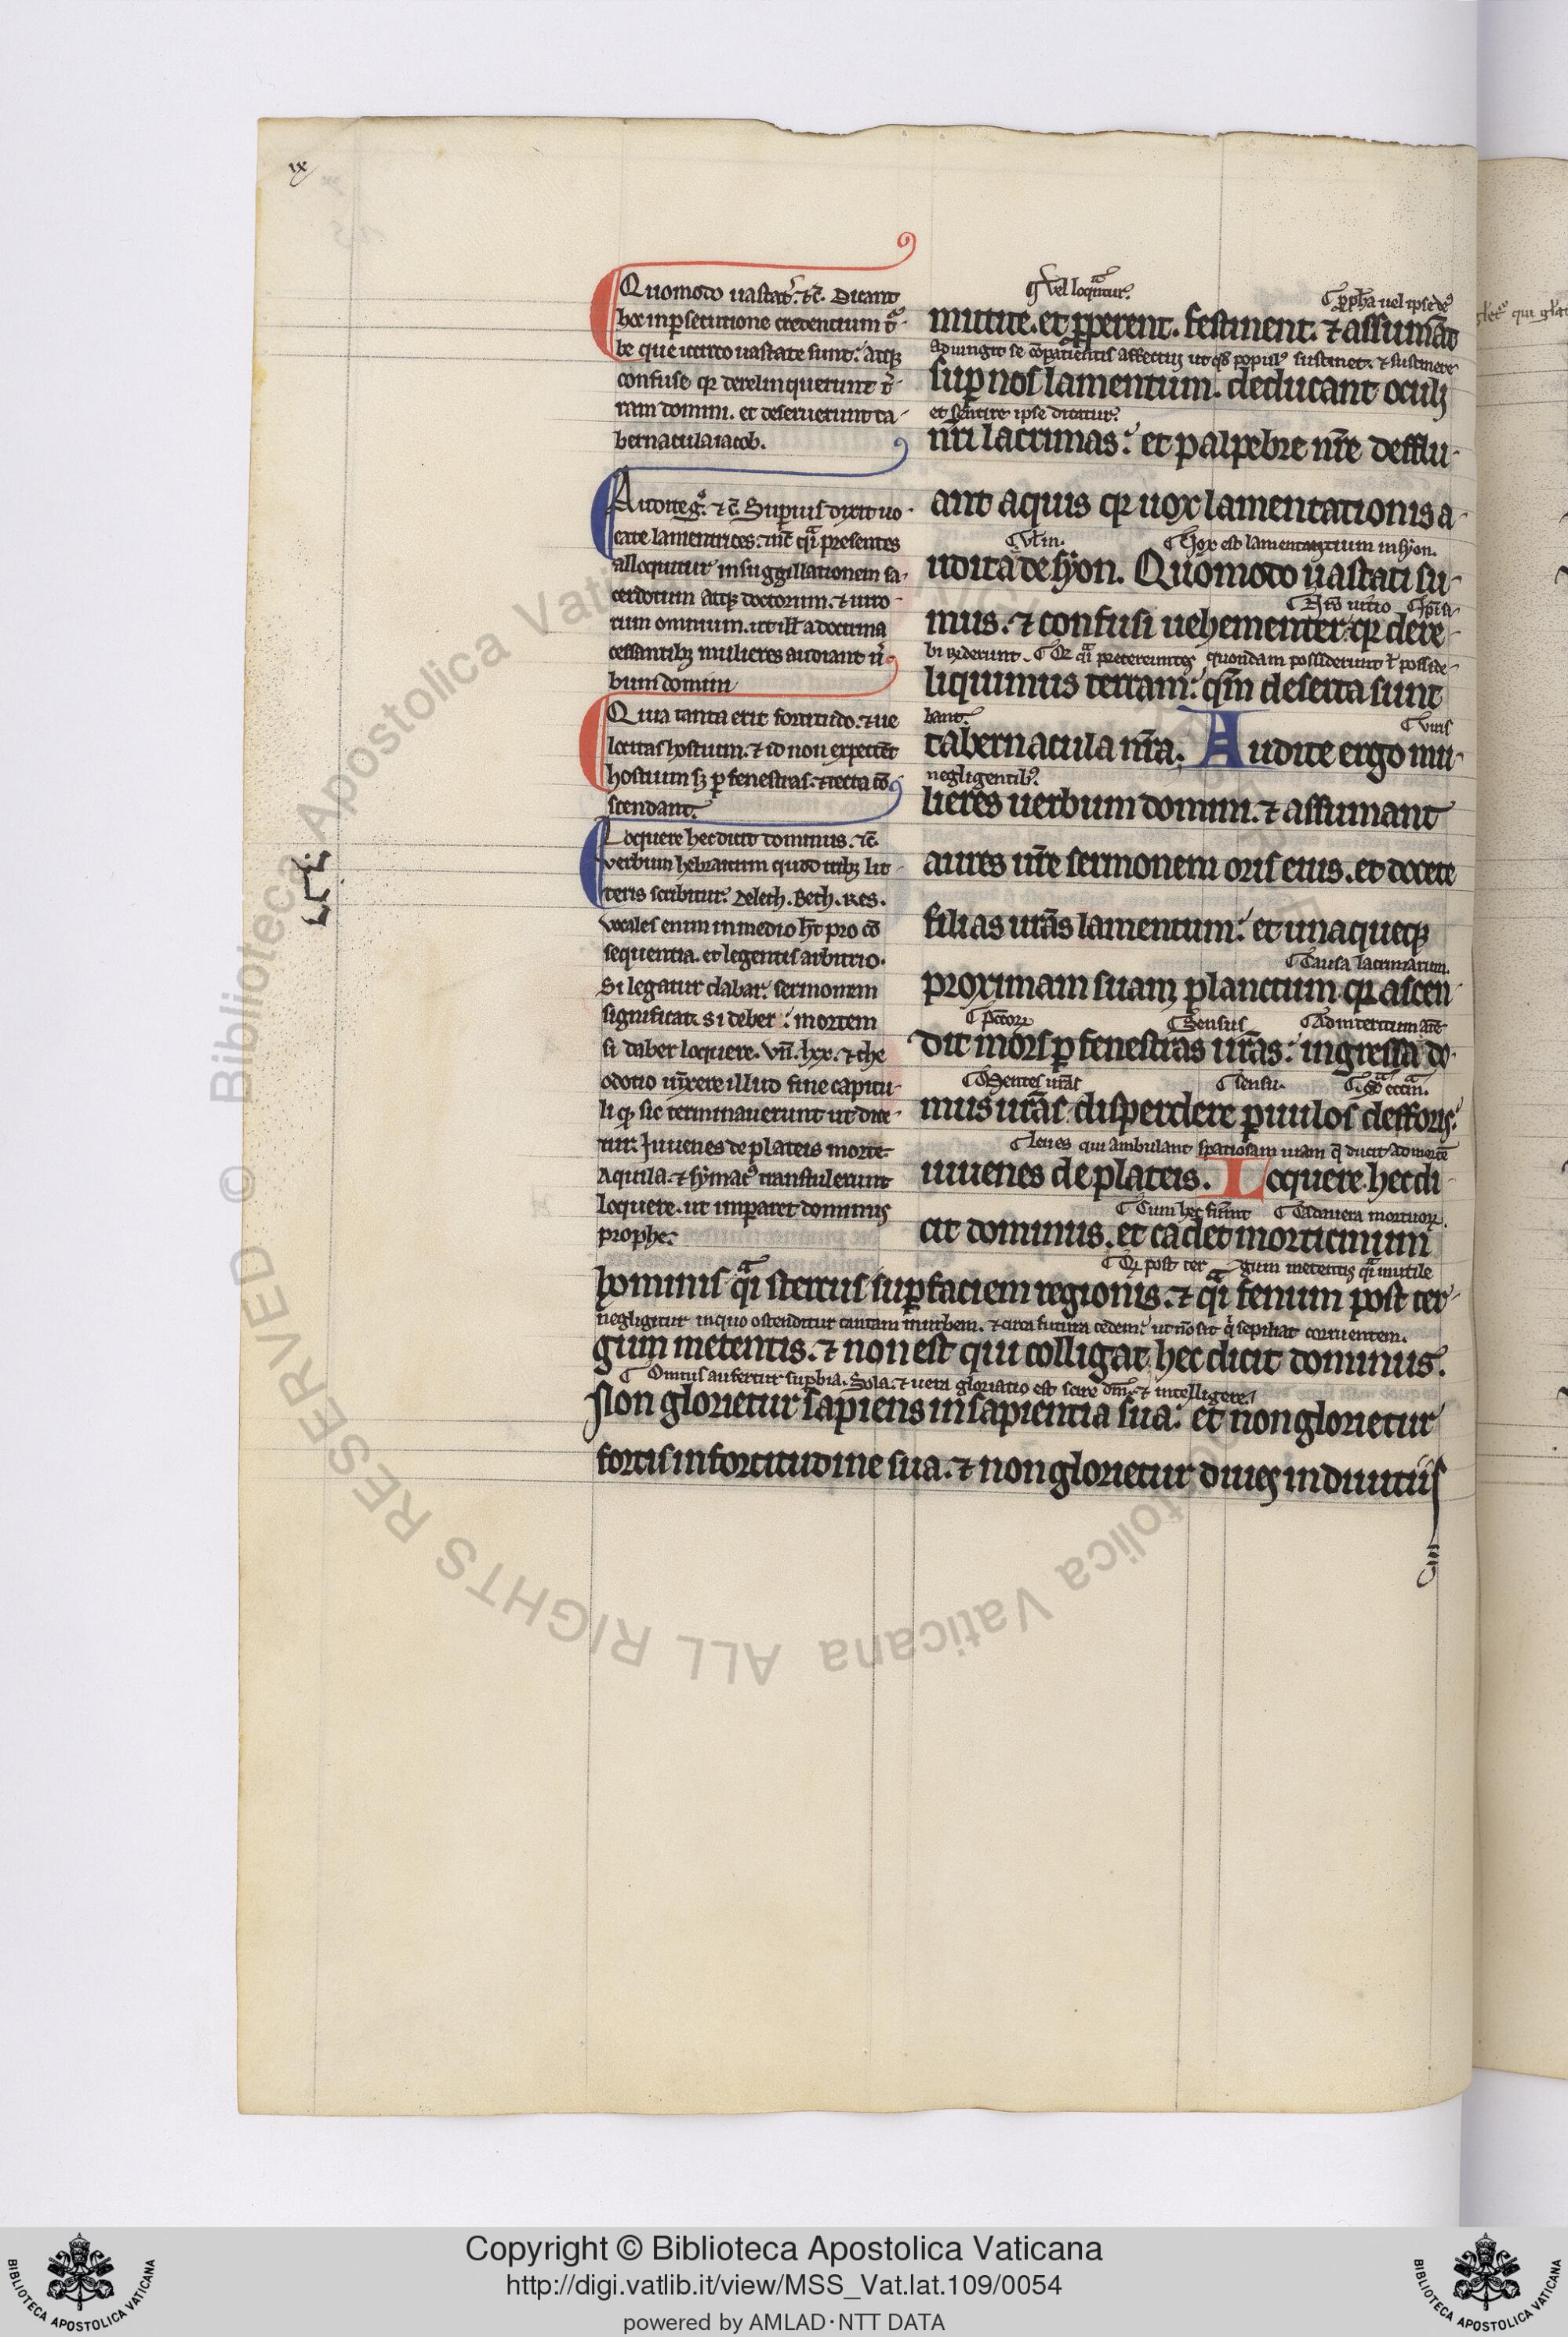 ix
Quomodo uastat᷑. ⁊c̄. Dicant
hec in ꝑsecutione credentium t᷑
be que iccirco uastate sunt: atq;
confuse qꝛ derelinquerunt t᷑
ram domini. et deseruerunt ta-
bernacula iacob.
Audite g̊. ⁊ c̄. Suꝑius dixit uo-
cate lamentrices. nūc q̄i presentes
alloquitur in suggillationem sa-
cerdotum atq; doctorum. ⁊ uiro-
rum omnium. ut ill̄ a doctrina
cessantibꝫ mulieres audiant u̾-
bum domini
Quia tanta erit fortitudo. ⁊ ue
locitas hostium. ⁊ id non expectēt
hostium sꝫ ꝑ fenestras. ⁊ tecta cō
scendant.
Loquere hec dicit dominus. ⁊c̄.
verbum hebraicum quod tribꝫ lit-
teris scribitur. Deleth. Beth. Res.
vocales enim in medio hn̄t pro cō
sequentia. et legentis arbitrio.
Si legatur dabar: sermonem
significat. si deber: mortem
si daber loquere. vn̄. lxx. ⁊ the
odotio iūxere illud fine capitu-
li qꝫ sic terminauerunt ut dice-
tur. Iuuenes de plateis morte
Aquila. ⁊ symacꝰ transtulerunt
loquere. ut imparet dominus
prophe.
דבר
vel loquitur.
ꝓpha uel ipse dꝰ
mitite. et ꝓperent. festinent. ⁊ assumāt
adiungit se cōpatientis affectu ut qd̄ populꝰ sustinet. ⁊ sustinere
suꝑ nos lamentum. deducant oculi
et sentire ipse dicatur.
nr̄i lacrimas: et palpebre nr̄e defflu-
ant aquis qꝛ uox lamentationis a-
Vox est lamentantium in syon.
udita de syon. Quomodo uastati su-
mus. ⁊ confusi uehementer: qꝛ dere-
quondam possiderunt ł posside-
liquimus terram: qm̄ deserta sunt
bant.
Viris
tabernacula nr̄a. Audite ergo mu-
negligentibꝰ.
lieres uerbum domini. ⁊ assumant
aures ur̄e sermonem oris eius. et docete
filias ur̄as lamentum: et unaqueqꝫ
Causa lacrimarum.
proximam suam planctum. qꝛ ascen
Sensus
Ad interitum
dit mors ꝑ fenestras ur̄as: ingressa do-
Mentes ur̄as
sensu.
mus ur̄as: disperdere ꝑuulos defforis:
leues qui ambulant spatiosam uiam q̄ ducit ad morte
iuuenes de plateis. Loquere hec di-
Cum hec fiunt
Cadauera mortuoꝝ.
cit dominus. et cadet morticinum
Qꝛ post ter gum metentis q̄i inutile
hominis q̄i stercus suꝑ faciem regionis. ⁊ q̄i fenum post ter-
negligitur in quo ostenditur tantam in urbem. ⁊ circa futura cedem: ut nō sit q̇ sepeliat corruentem.
gum metentis. ⁊ non est qui colligat. hec dicit dominus.
Omnis aufertur suꝑbia. Sola. ⁊ uera gloriatio est scire dm̄. ⁊ intelligere.
Non glorietur sapiens in sapientia sua: et non glorietur
fortis in fortitudine sua. ⁊ non glorietur diues in diuitiis
© Biblioteca Apostolica Vaticana ALL RIGHTS RESERVED
Copyright © Biblioteca Apostolica Vaticana
http://digi.vatlib.it/view/MSS_Vat.lat.109/0054
powered by AMLAD·NTT DATA
BIBLIOTECA APOSTOLICA VATICANA
BIBLIOTECA APOSTOLICA VATICANA